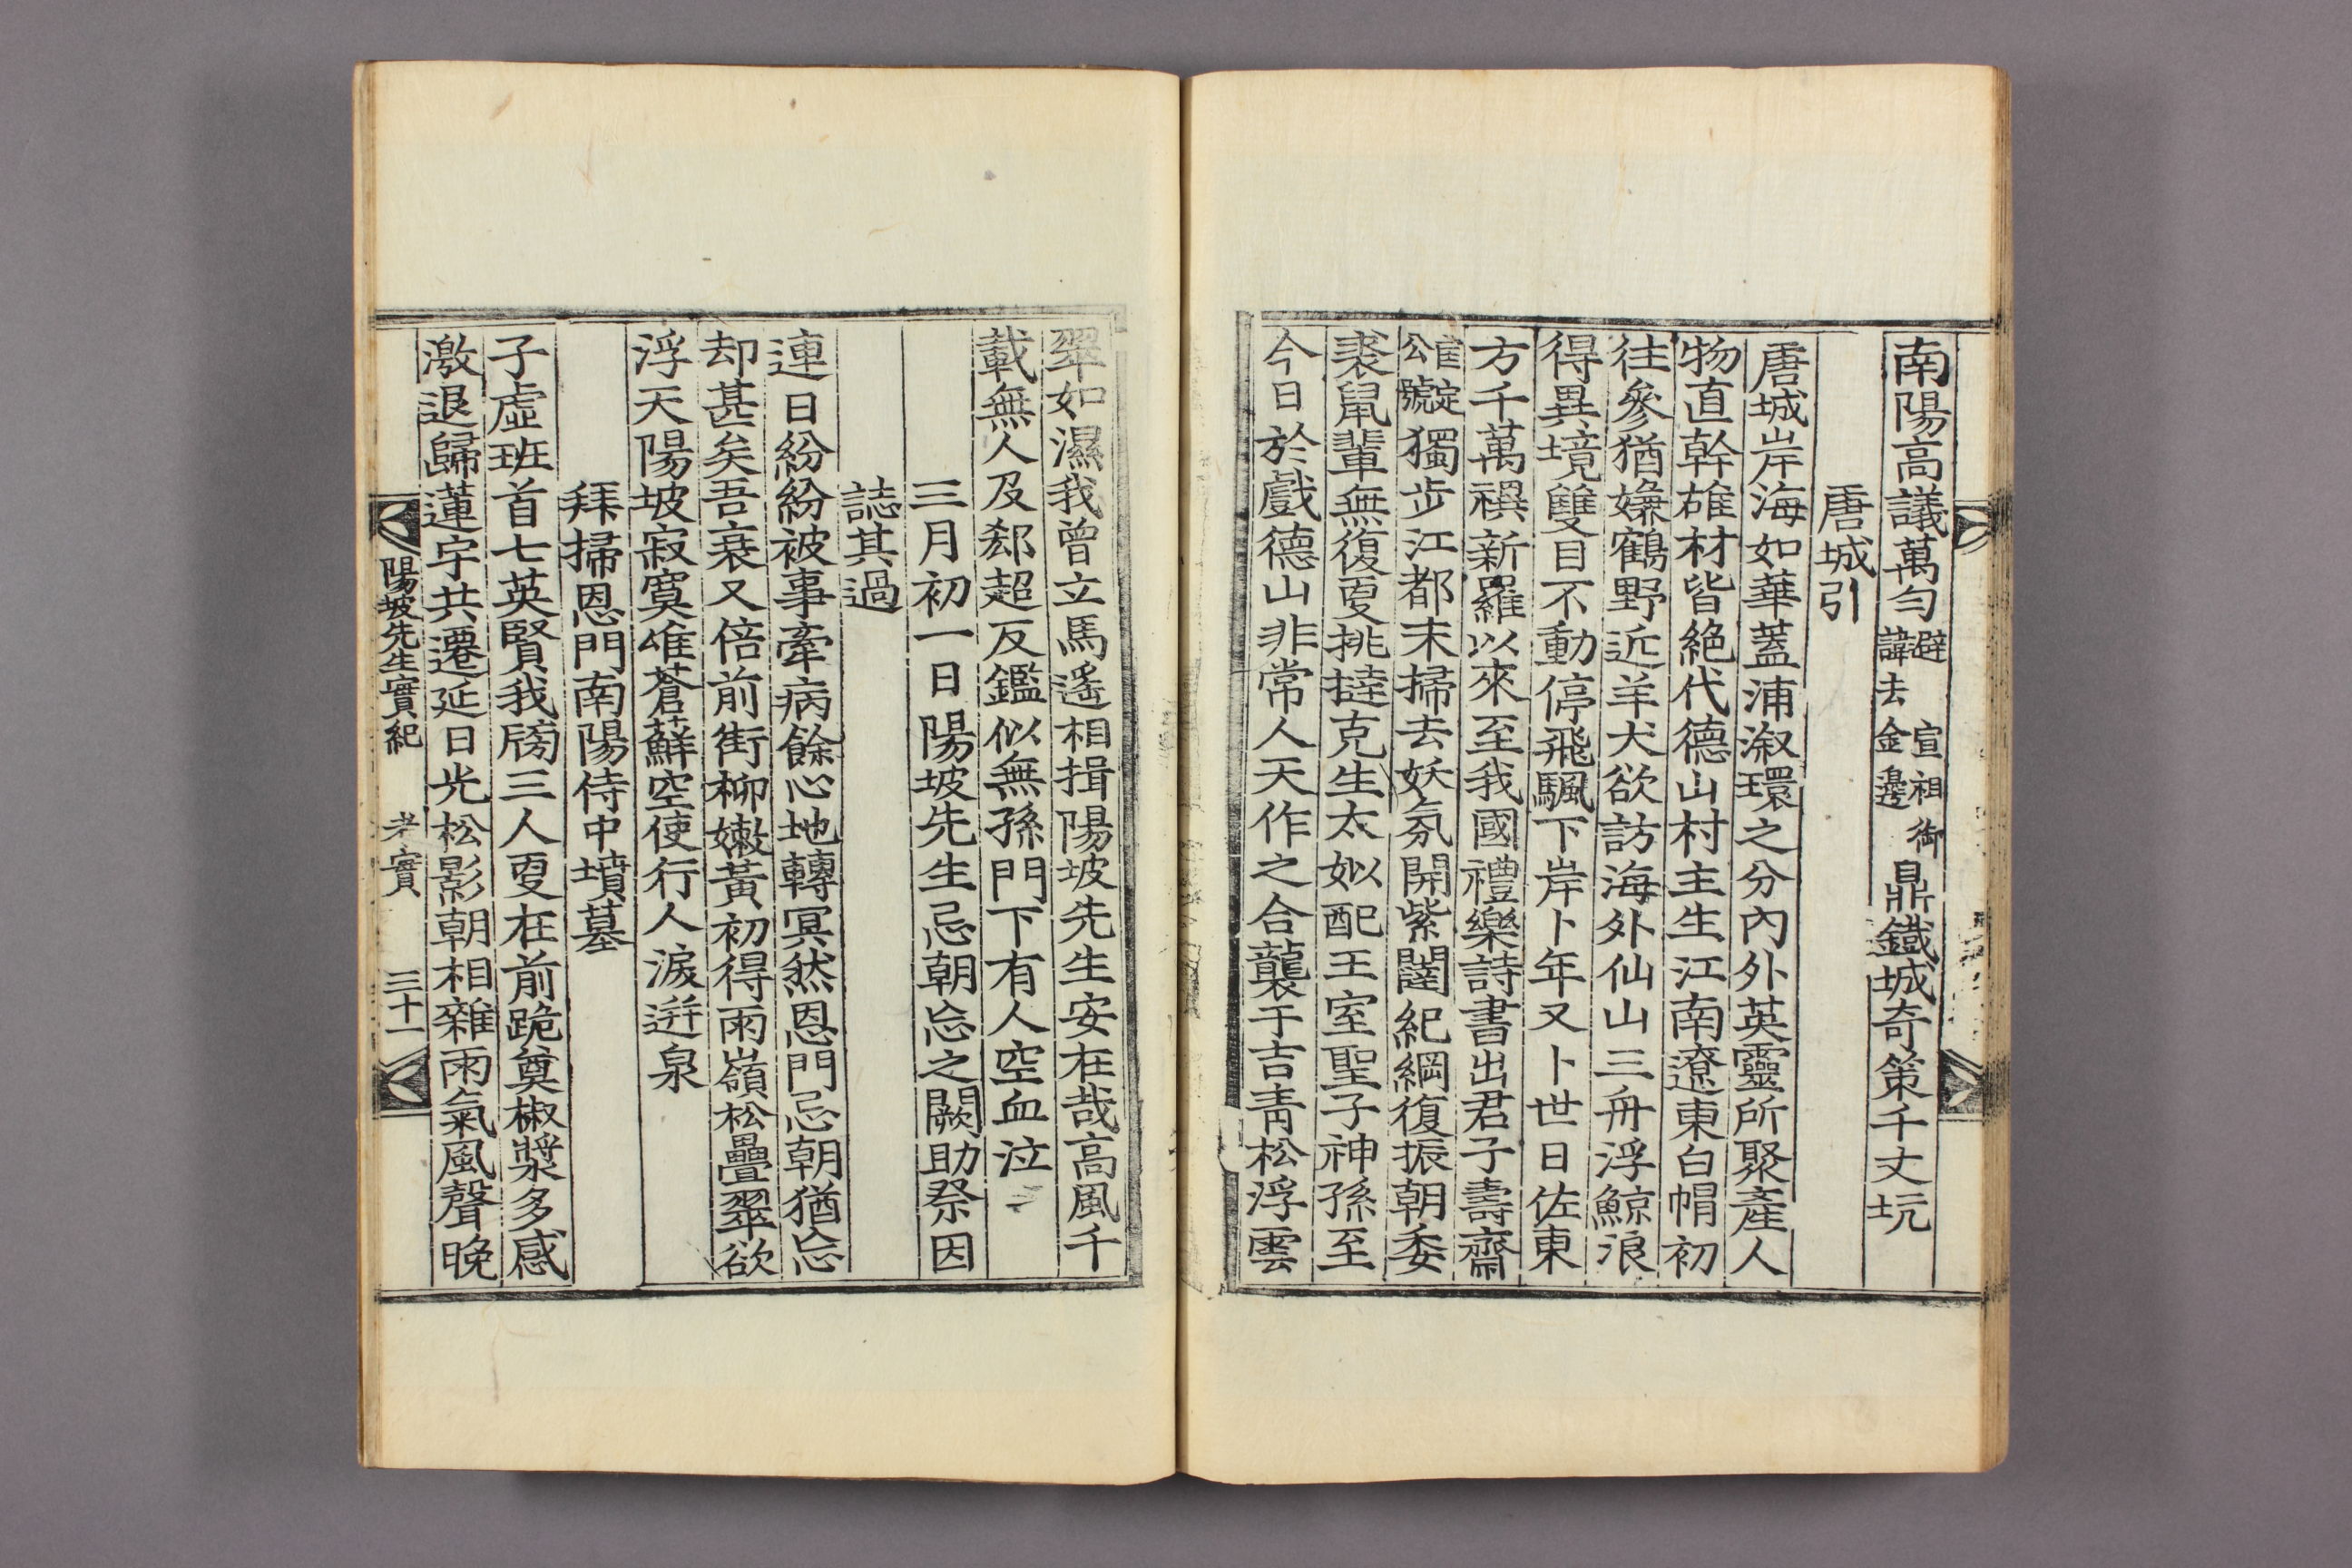 南陽高議萬勻避諱去金邊宣祖御鼎鐵城奇策千丈坃
唐城引
唐城岸海如華蓋浦溆環之分內外英靈所聚產人
物直幹雄材皆絶代德山村主生江南遼東白帽初
往參猶嫌鶴野近羊犬欲訪海外仙山三舟浮鯨浪
得異境雙目不動停飛颿下岸卜年又卜世日佐東
方千萬禩新羅以來至我國禮樂詩書出君子壽齋
公官號定獨步江都末掃去妖氛開紫闥紀綱復振朝委
裘鼠輩無復叓挑撻克生太姒配王室聖子神孫至
今日於戲德山非常人天作之合襲于吉靑松浮雲
翠如濕我曾立馬遙相揖陽坡先生安在哉高風千
載無人及郄超反鑑似無孫門下有人空血泣
三月初一日陽坡先生忌朝忘之闕助祭因
誌其過
連日紛紛被事牽病餘心地轉冥然恩門忌朝猶忘
却甚矣吾衰又倍前街柳嫩黃初得雨嶺松疊翠欲
浮天陽坡寂寞堆蒼蘚空使行人淚迸泉
拜掃恩門南陽侍中墳墓
子虛班首七英賢我牓三人叓在前跪奠椒漿多感
激退歸蓮宇共遷延日光松影朝相雜雨氣風聲晚
陽坡先生實紀 考實 三十一